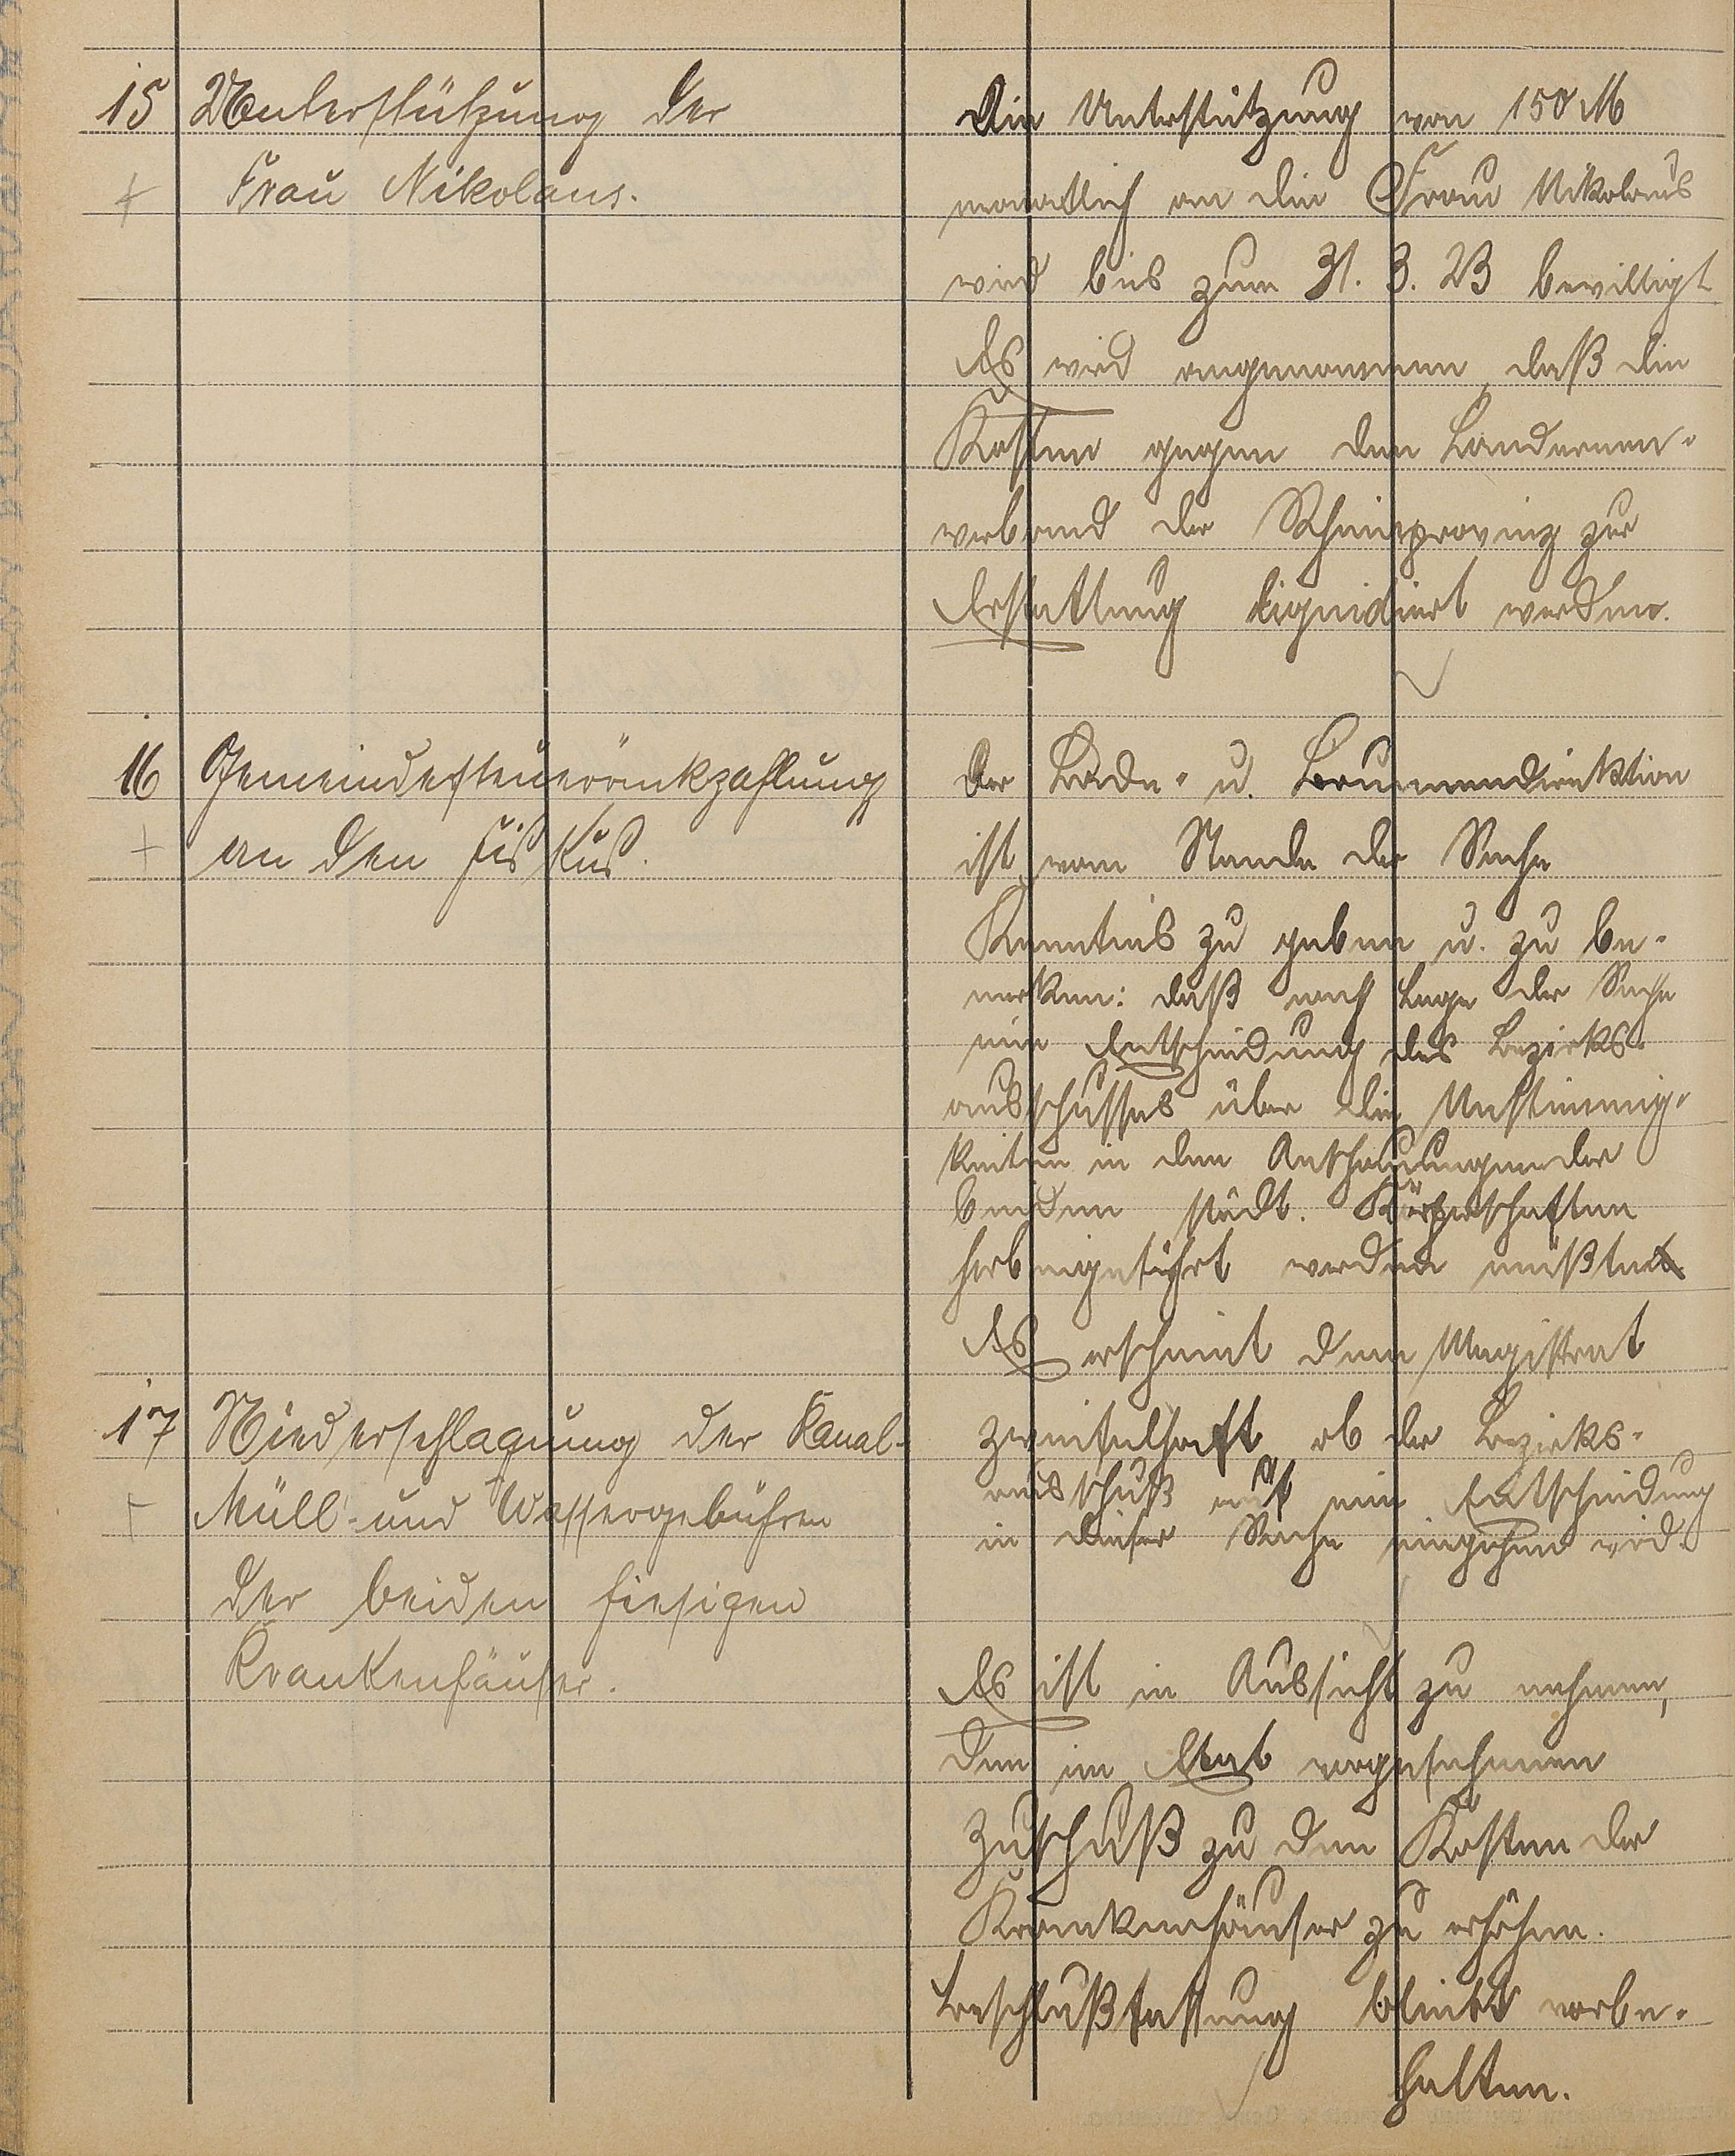 15 Unterstützung der
Frau Nikolaus.
Die Unterstützung von 150 M
monatlich an die Frau Nikolaus
wird bis zum 31. 3. 23 bewilligt
Es wird angenommen, daß die
Kosten gegen den Landarmen-
verband der Rheinprovinz zur
Erstattung liquidiert werden.
16 Gemeindesteuerrückzahlung
an den Fiskus.
Der Bade- u. Brunnendirektion
ist vom Stande der Sache
Kenntnis zu geben u. zu be-
merken: daß nach Lage der Sache
eine Entscheidung des Bezirks-
ausschusses über die Unstimmig-
keiten in den Anschauungen der
beiden städt. Körperschaften
herbeigeführt werden müßte
Es erscheint dem Magistrat
zweifelhaft ob der Bezirks-
ausschuß auf eine Entscheidung
in dieser Sache eingehen wird.
17 Niederschlagung der Kanal-
Müll- und Wassergebühren
der beiden hiesigen
Krankenhäuser.
Es ist in Aussicht zu nehmen,
den im Etat vorgesehenen
Zuschuß zu den Kosten der
Krankenhäuser zu erhöhen.
Beschlußfassung bleibt vorbe-
halten.